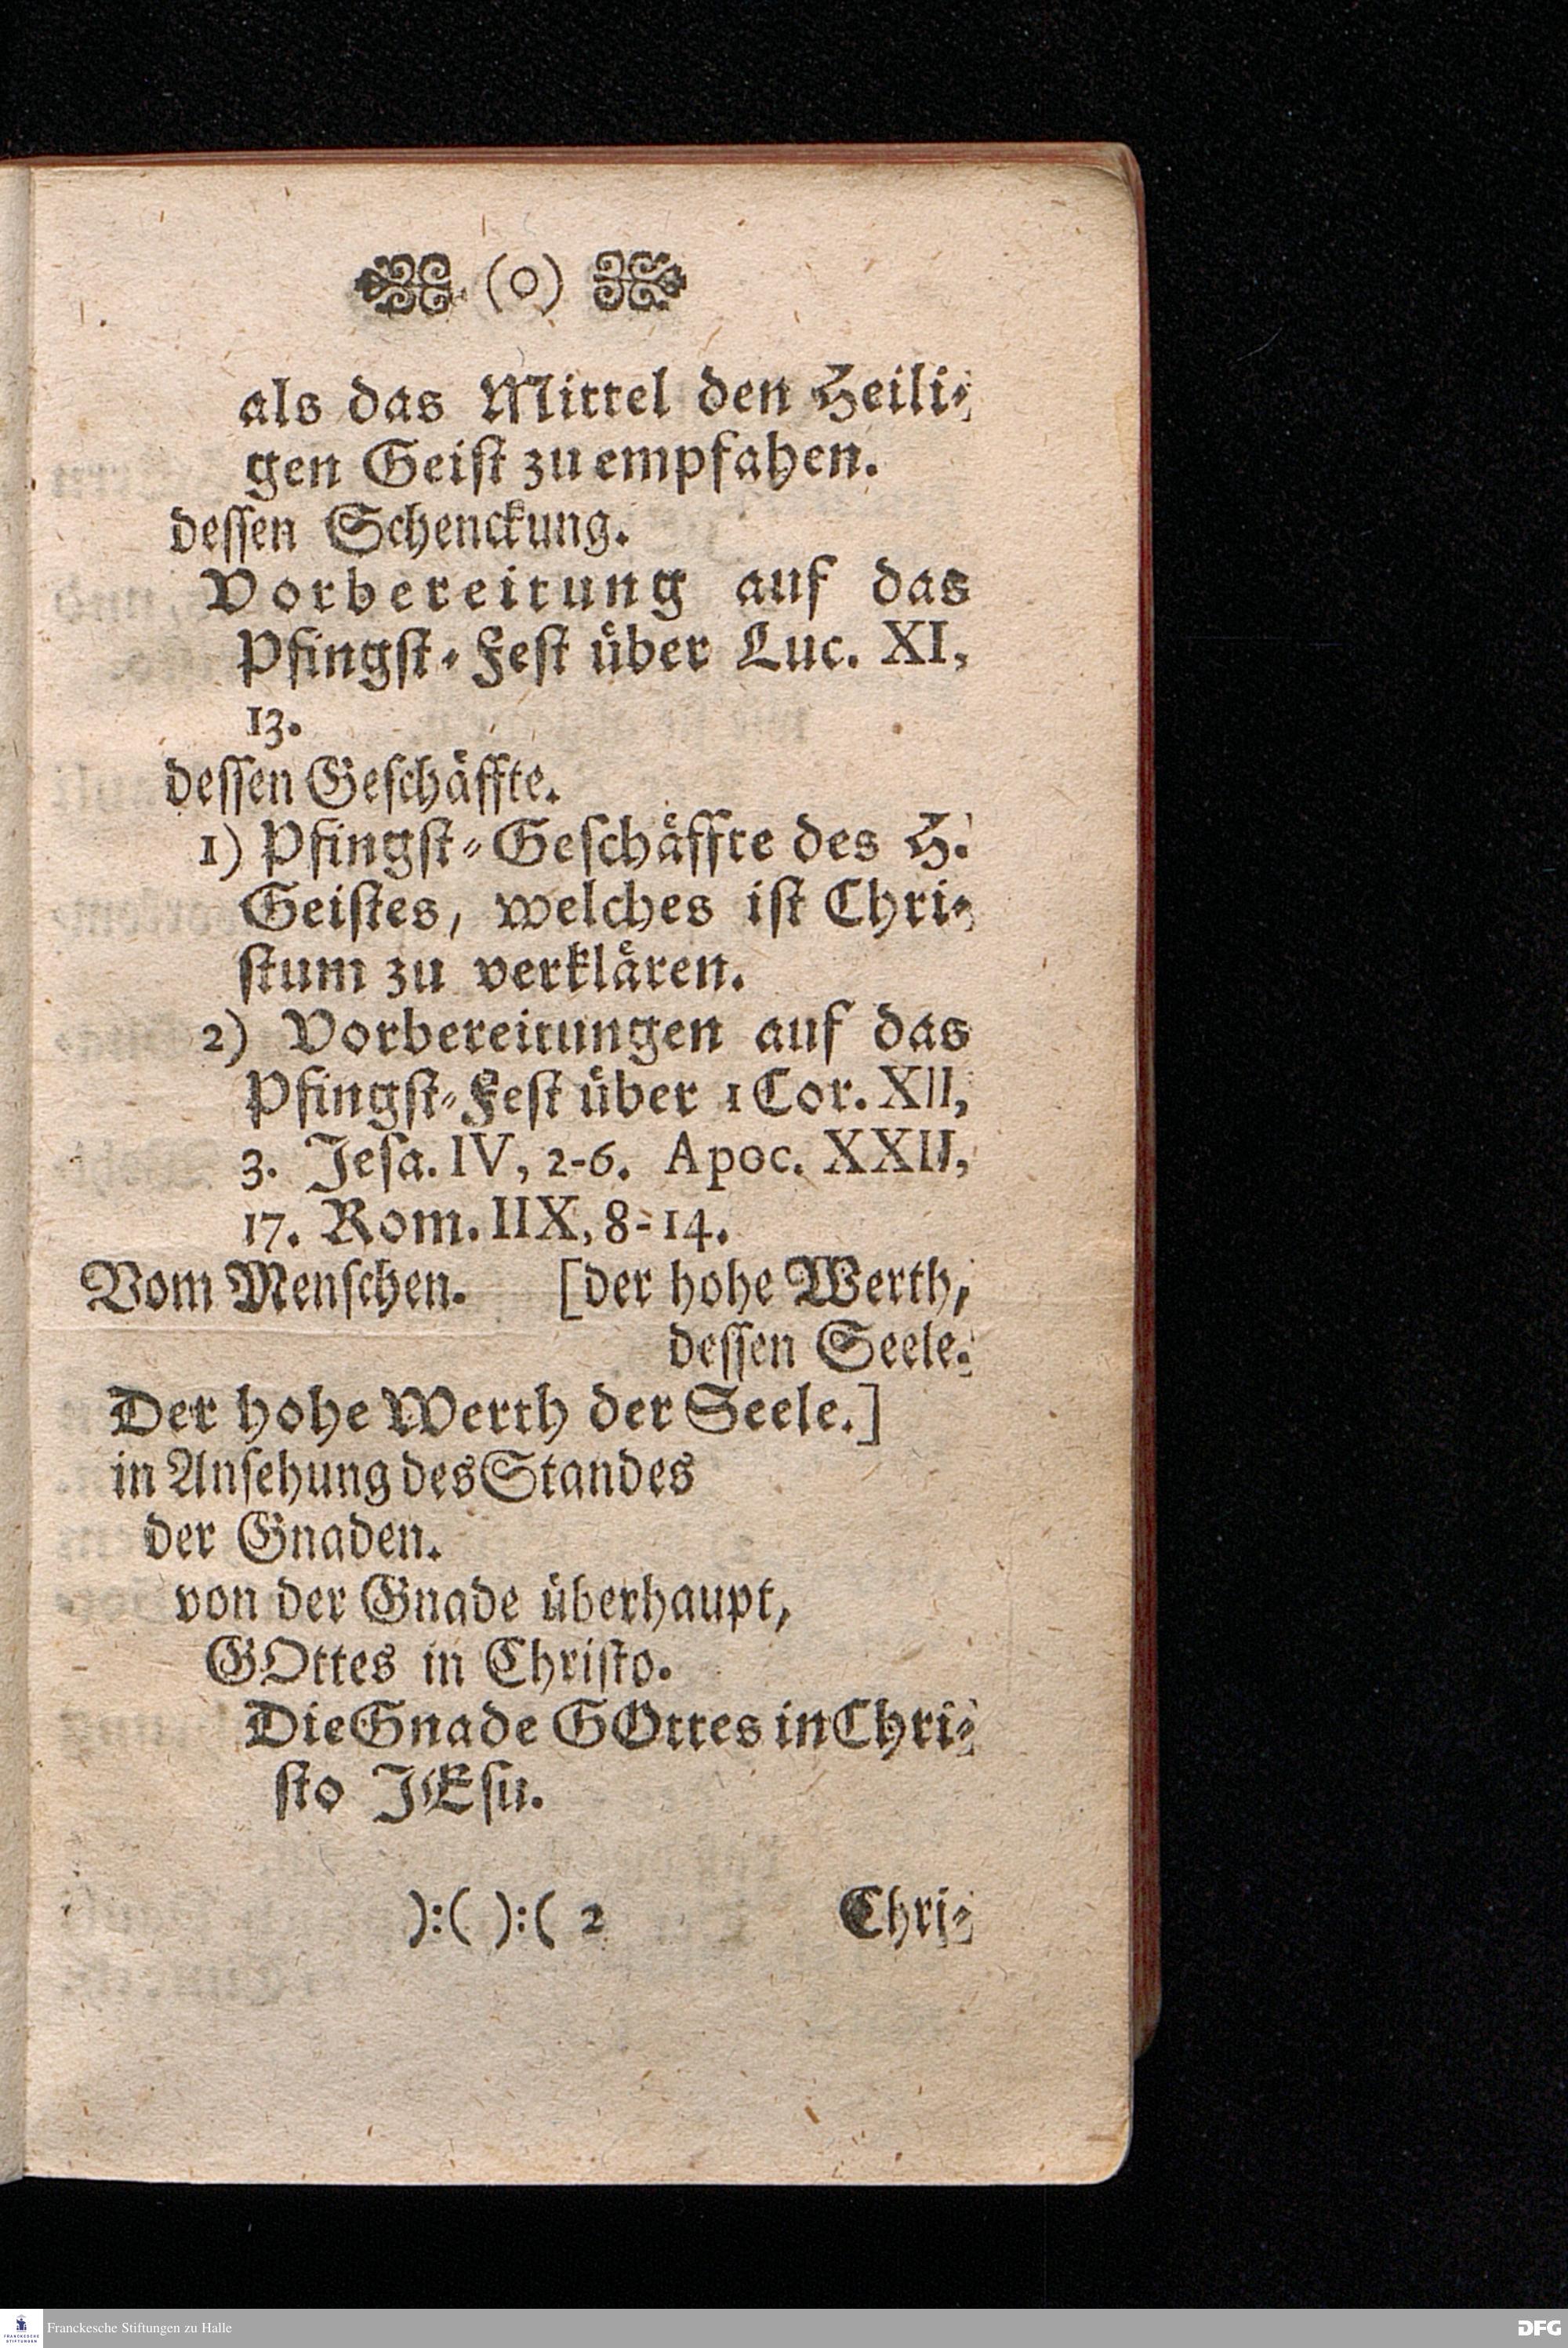 (o)
als das Mittel den Heili-
gen Geist zu empfahen.
dessen Schenckung.
Vorbereitung auf das
Pfingst-Fest über Luc. XI,
13.
dessen Geschäffte.
1) Pfingst-Geschäffte des H.
Geistes, welches ist Chri-
stum zu verklären.
2) Vorbereitungen auf das
Pfingst-Fest über 1 Cor. XII,
3. Jesa. IV, 2-6. Apoc. XXII,
17. Rom. IIX, 8-14.
Vom Menschen. [der hohe Werth,
dessen Seele.
Der hohe Werth der Seele.]
in Ansehung des Standes
der Gnaden.
von der Gnade überhaupt,
GOttes in Christo.
Die Gnade GOttes in Chri-
sto JEsu.
):( ):( 2 Chri-
Franckesche Stiftungen zu Halle
FRANCKESCHE STIFTUNGEN
DFG